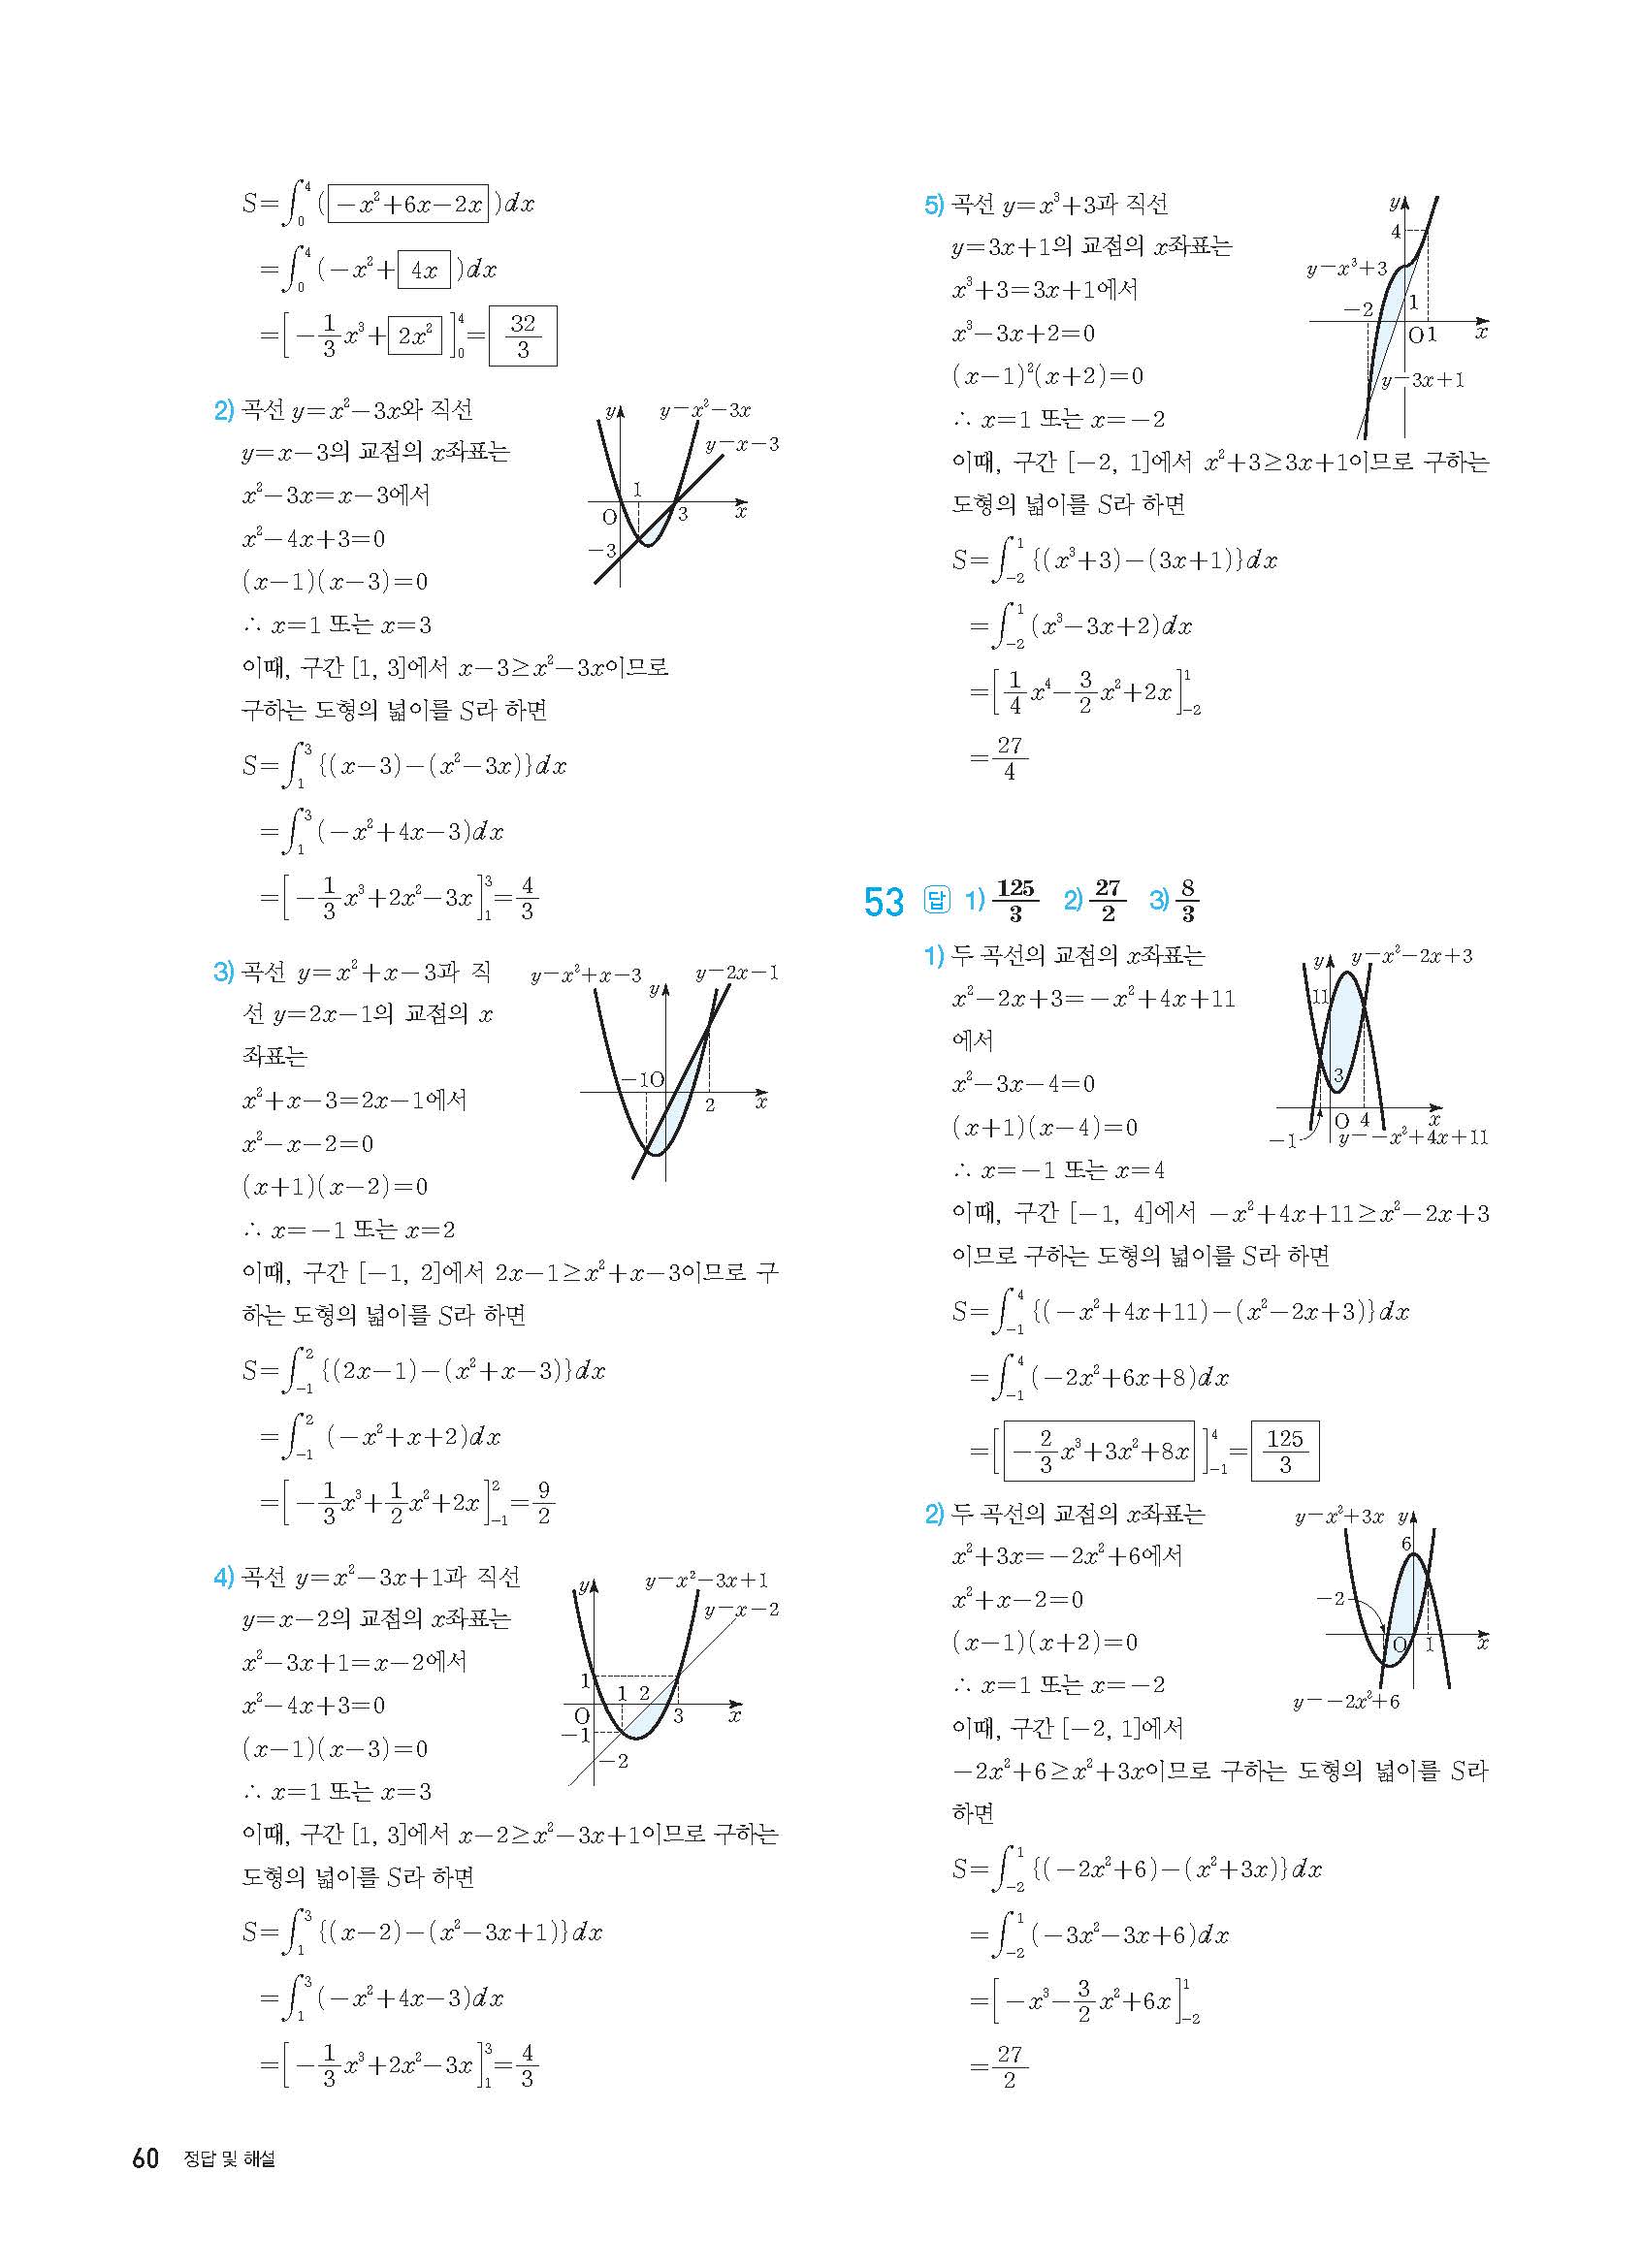 S=∫₀⁴(−x²+6x−2x)dx
=∫₀⁴(−x²+4x)dx
=[−1/3x³+2x²]₀⁴=32/3
2) 곡선 y=x²−3x와 직선
y=x−3의 교점의 x좌표는
x²−3x=x−3에서
x²−4x+3=0
(x−1)(x−3)=0
∴ x=1 또는 x=3
y
y=x²−3x
y=x−3
1
O
3
x
−3
이때, 구간 [1, 3]에서 x−3≥x²−3x이므로
구하는 도형의 넓이를 S라 하면
S=∫₁³{(x−3)−(x²−3x)}dx
=∫₁³(−x²+4x−3)dx
=[−1/3x³+2x²−3x]₁³=4/3
3) 곡선 y=x²+x−3과 직
선 y=2x−1의 교점의 x
좌표는
x²+x−3=2x−1에서
x²−x−2=0
(x+1)(x−2)=0
∴ x=−1 또는 x=2
y=x²+x−3
y=2x−1
y
−1O
2
x
이때, 구간 [−1, 2]에서 2x−1≥x²+x−3이므로 구
하는 도형의 넓이를 S라 하면
S=∫₋₁²{(2x−1)−(x²+x−3)}dx
=∫₋₁²(−x²+x+2)dx
=[−1/3x³+1/2x²+2x]₋₁²=9/2
4) 곡선 y=x²−3x+1과 직선
y=x−2의 교점의 x좌표는
x²−3x+1=x−2에서
x²−4x+3=0
(x−1)(x−3)=0
∴ x=1 또는 x=3
y
y=x²−3x+1
y=x−2
1
1 2
O
3
x
−1
−2
이때, 구간 [1, 3]에서 x−2≥x²−3x+1이므로 구하는
도형의 넓이를 S라 하면
S=∫₁³{(x−2)−(x²−3x+1)}dx
=∫₁³(−x²+4x−3)dx
=[−1/3x³+2x²−3x]₁³=4/3
5) 곡선 y=x³+3과 직선
y=3x+1의 교점의 x좌표는
x³+3=3x+1에서
x³−3x+2=0
(x−1)²(x+2)=0
∴ x=1 또는 x=−2
y
4
y=x³+3
1
−2
O1
x
y=3x+1
이때, 구간 [−2, 1]에서 x²+3≥3x+1이므로 구하는
도형의 넓이를 S라 하면
S=∫₋₂¹{(x³+3)−(3x+1)}dx
=∫₋₂¹(x³−3x+2)dx
=[1/4x⁴−3/2x²+2x]₋₂¹
=27/4
53 답 1) 125/3 2) 27/2 3) 8/3
1) 두 곡선의 교점의 x좌표는
x²−2x+3=−x²+4x+11
에서
x²−3x−4=0
(x+1)(x−4)=0
∴ x=−1 또는 x=4
y
y=x²−2x+3
11
3
O 4
x
−1
y=−x²+4x+11
이때, 구간 [−1, 4]에서 −x²+4x+11≥x²−2x+3
이므로 구하는 도형의 넓이를 S라 하면
S=∫₋₁⁴{(−x²+4x+11)−(x²−2x+3)}dx
=∫₋₁⁴(−2x²+6x+8)dx
=[−2/3x³+3x²+8x]₋₁⁴=125/3
2) 두 곡선의 교점의 x좌표는
x²+3x=−2x²+6에서
x²+x−2=0
(x−1)(x+2)=0
∴ x=1 또는 x=−2
y=x²+3x
y
6
−2
O
1
x
y=−2x²+6
이때, 구간 [−2, 1]에서
−2x²+6≥x²+3x이므로 구하는 도형의 넓이를 S라
하면
S=∫₋₂¹{(−2x²+6)−(x²+3x)}dx
=∫₋₂¹(−3x²−3x+6)dx
=[−x³−3/2x²+6x]₋₂¹
=27/2
60 정답 및 해설